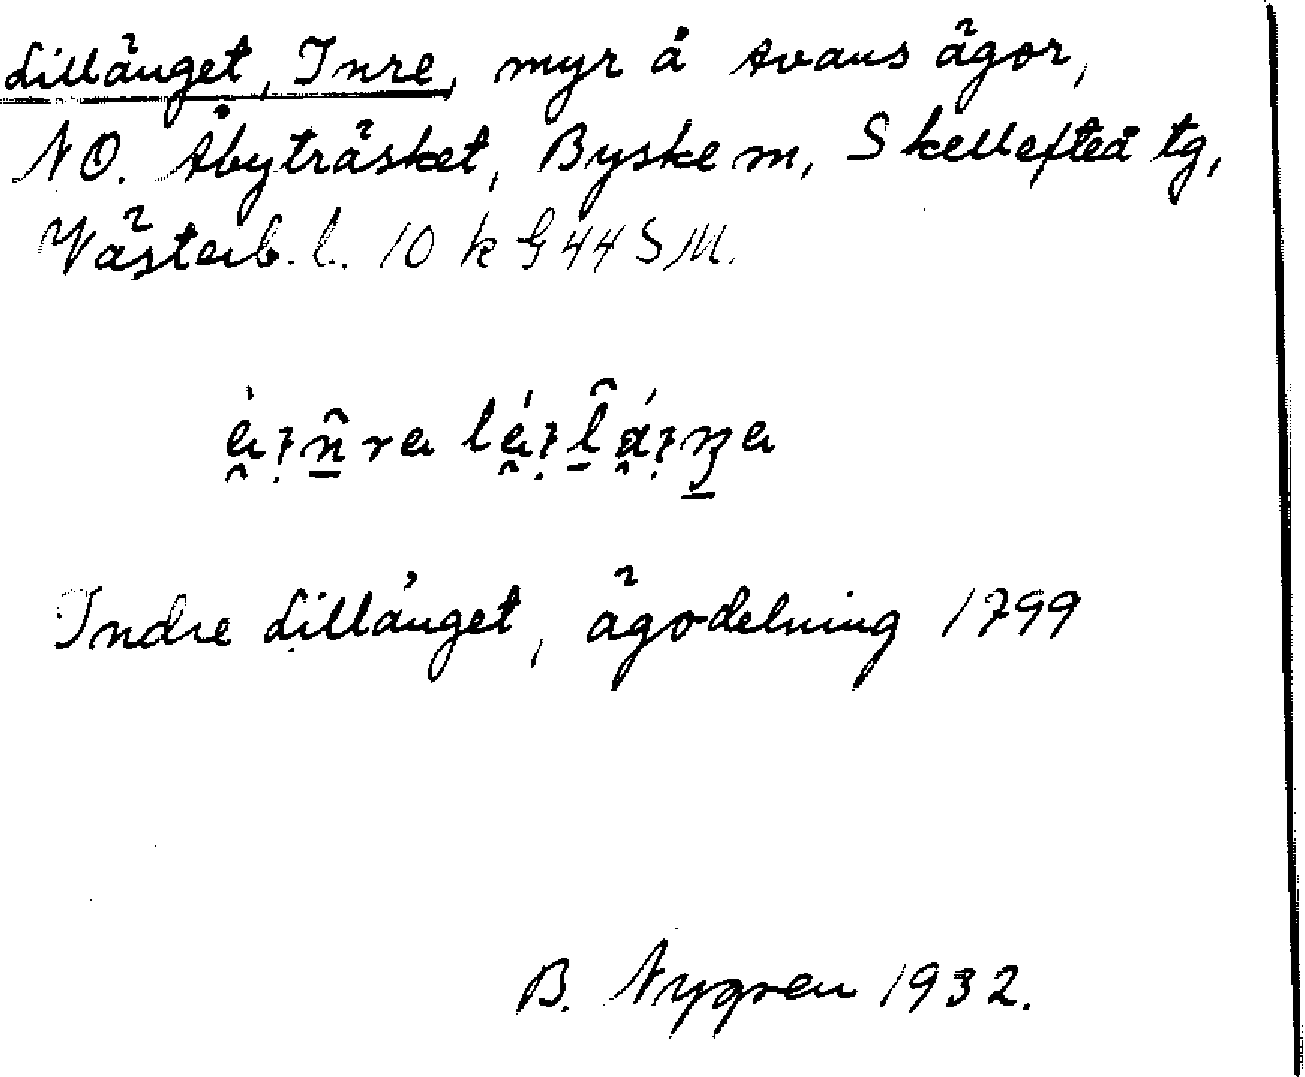 Lillänget, Inre, myr å Avans ägor,
NO. Åbyträsket, Byske m, Skellefteå tg,
Västerb. l. 10 k G 44 SM.
Indre Lillänget, ägodelning 1799
B. Nygren 1932.